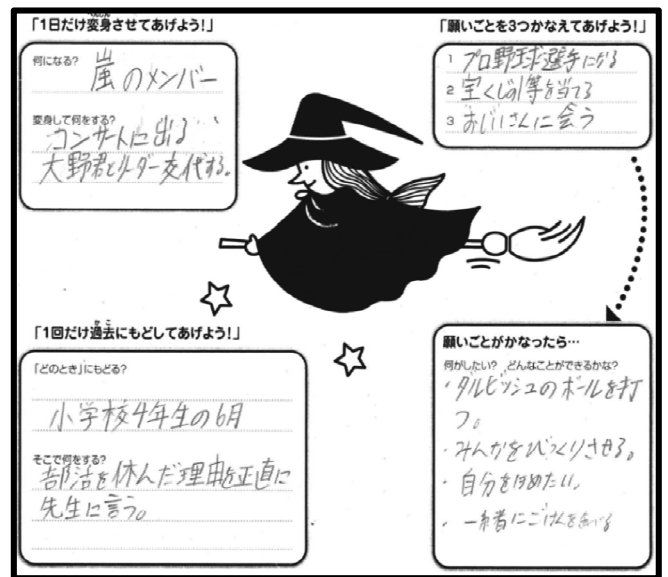 「1日だけ変身させてあげよう!」
何になる?
嵐のメンバー
変身して何をする?
コンサートに出る
大野君とリーダー交代する。
「願いごとを3つかなえてあげよう!」
1 プロ野球選手になる
2 宝くじの1等を当てる
3 おじいさんに会う
「1回だけ過去にもどしてあげよう!」
「どのとき」にもどる?
小学校4年生の6月
そこで何をする?
部活を休んだ理由を正直に
先生に言う。
願いごとがかなったら…
何がしたい? どんなことができるかな?
・ダルビッシュのボールを打
つ。
・みんなをびっくりさせる。
・自分をほめたい。
・一緒にごはんをたべる